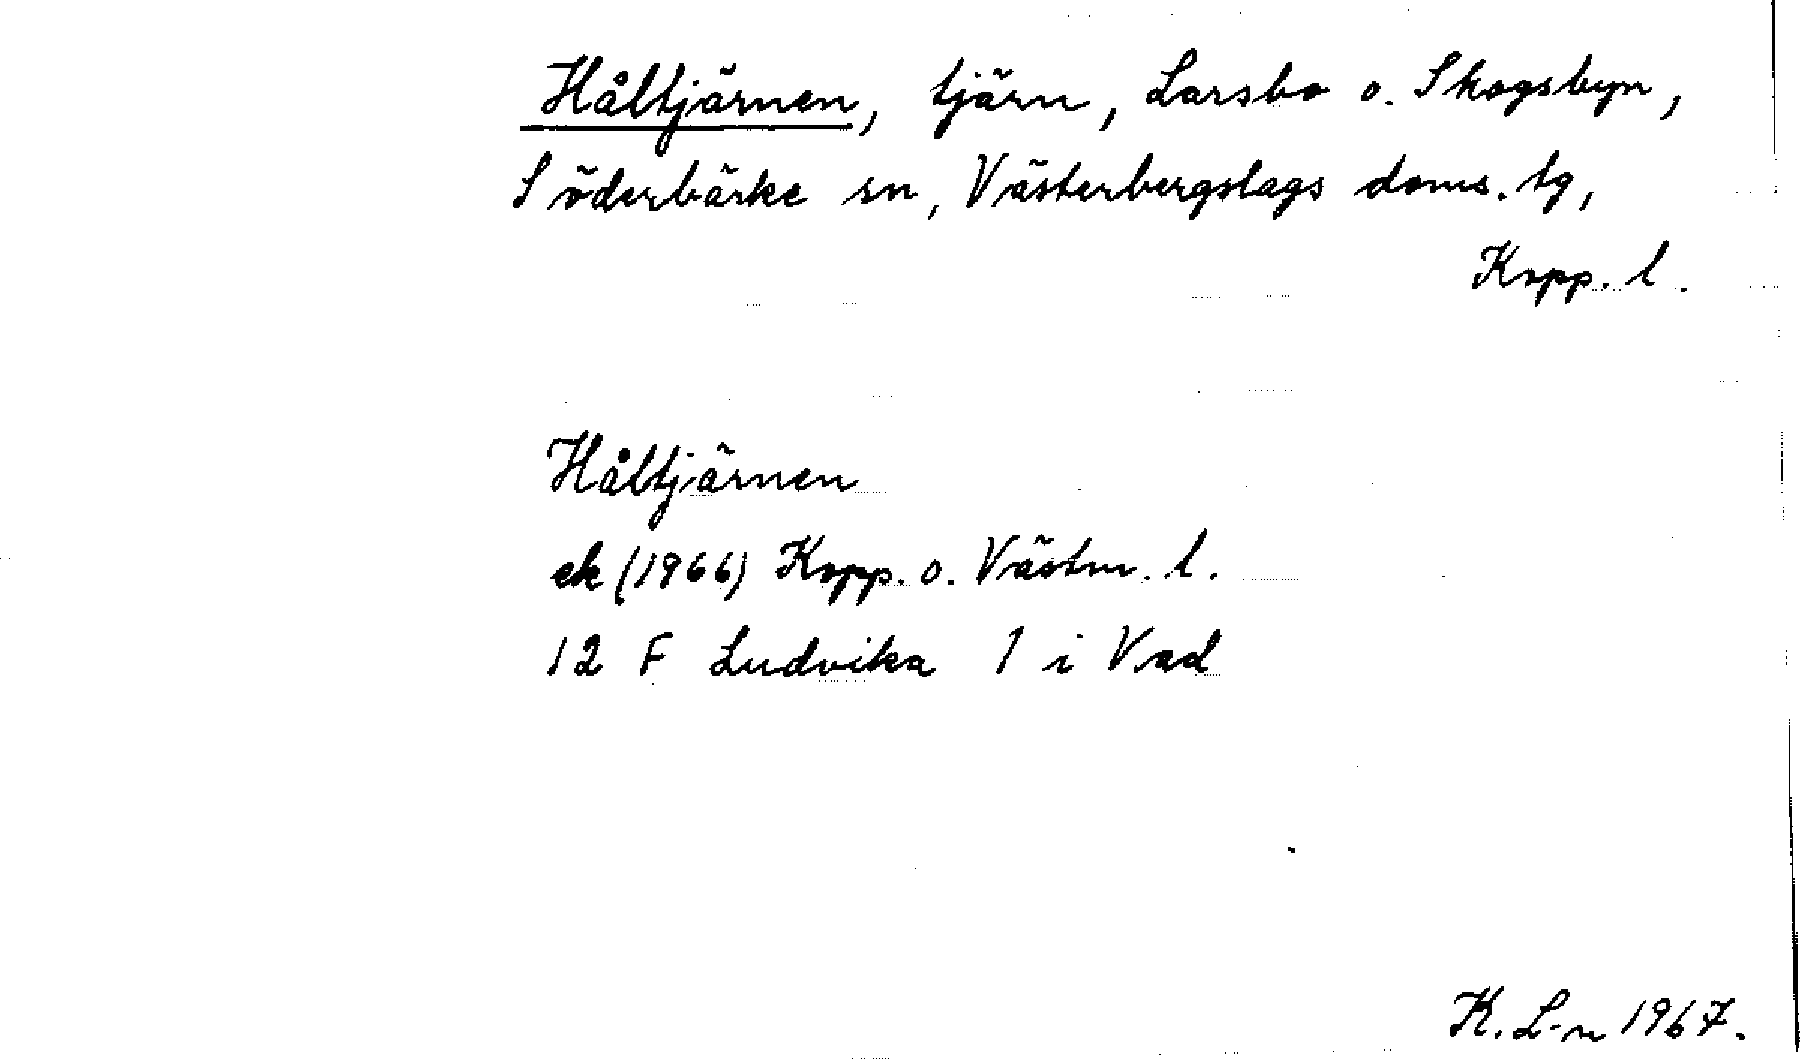 Håltjärnen, tjärn, Larsbo o. Skogsbyn,
Söderbärke sn, Västerbergslags doms. tg,
Kopp. l.
Håltjärnen
ek (1966) Kopp. o. Västm. l.
12 F Ludvika 1 i Vad
K. L-n 1967.